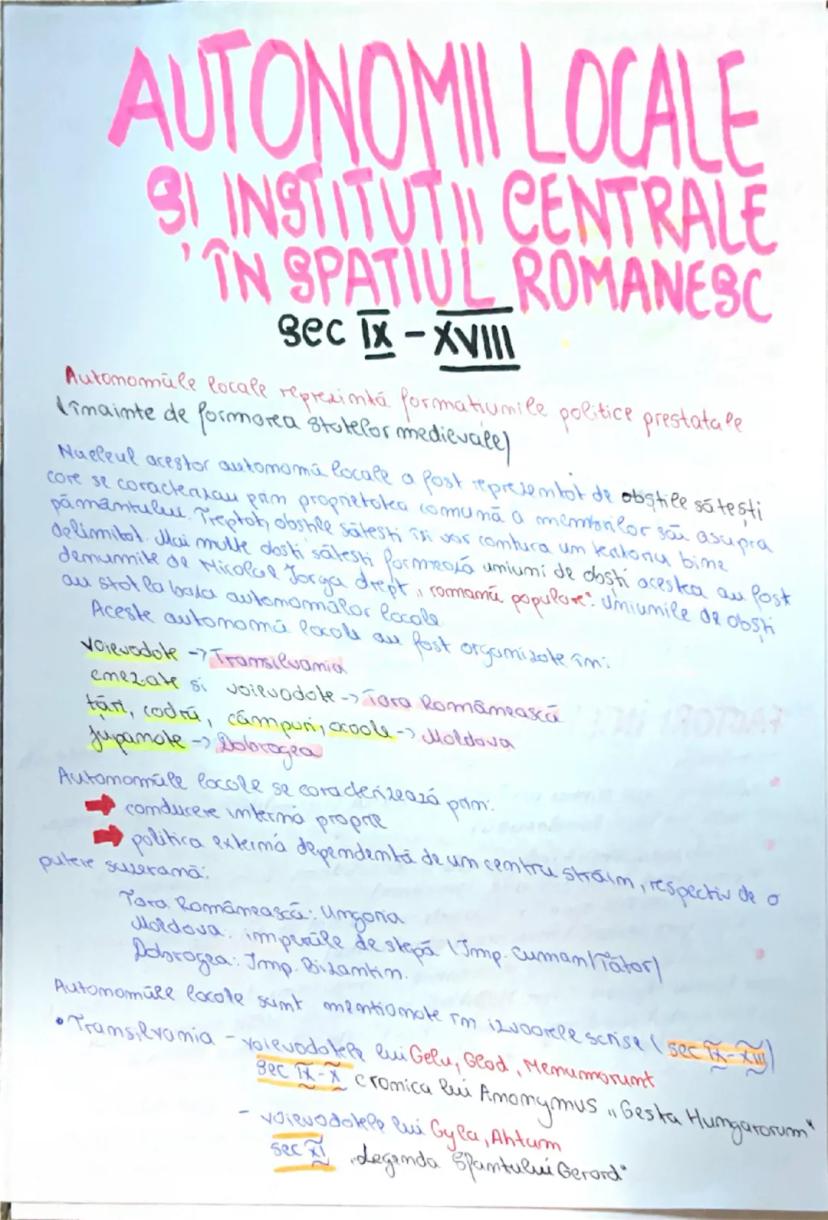 AUTONOMII LOCALE
ȘI INSTITUȚII CENTRALE
ÎN SPATIUL ROMANESC
sec IX - XVIII
Autonomiile locale reprezintă formatiunile politice prestatale
(înainte de formarea statelor medievale)
Nucleul acestor autonomii locale a fost reprezentat de obștile sătești
care se caracterizau prin proprietatea comună a membrilor săi asupra
pământului. Treptat, obstile sătesti isi vor contura un teritoriu bine
delimitat. Mai multe obsti sătești formează uniuni de obști acestea au fost
denumite de Nicolae Iorga drept „romanii populare". Uniunile de obști
au stat la baza autonomiilor locale
Aceste autonomii locale au fost organizate în:
voievodate -> Transilvania
cnezate si voievodate -> Tara Românească
tări, codrii, câmpuri, ocoale -> Moldova
jupanate -> Dobrogea
Autonomiile locale se caracterizează prin:
conducere internă proprie
politica externă dependentă de un centru străin, respectiv de o
putere suzerană:
Tara Românească: Ungaria
Moldova: imperiile de stepă (Imp. Cuman/Tătar)
Dobrogea: Imp. Bizantin.
Autonomiile locale sunt mentionate în izvoarele scrise (sec IX-XIII)
• Transilvania - voievodatele lui Gelu, Glad, Menumorunt
sec IX-X cronica lui Anonymus „Gesta Hungarorum"
- voievodatele lui Gyla, Ahtum
sec XI „Legenda Sfantului Gerard"